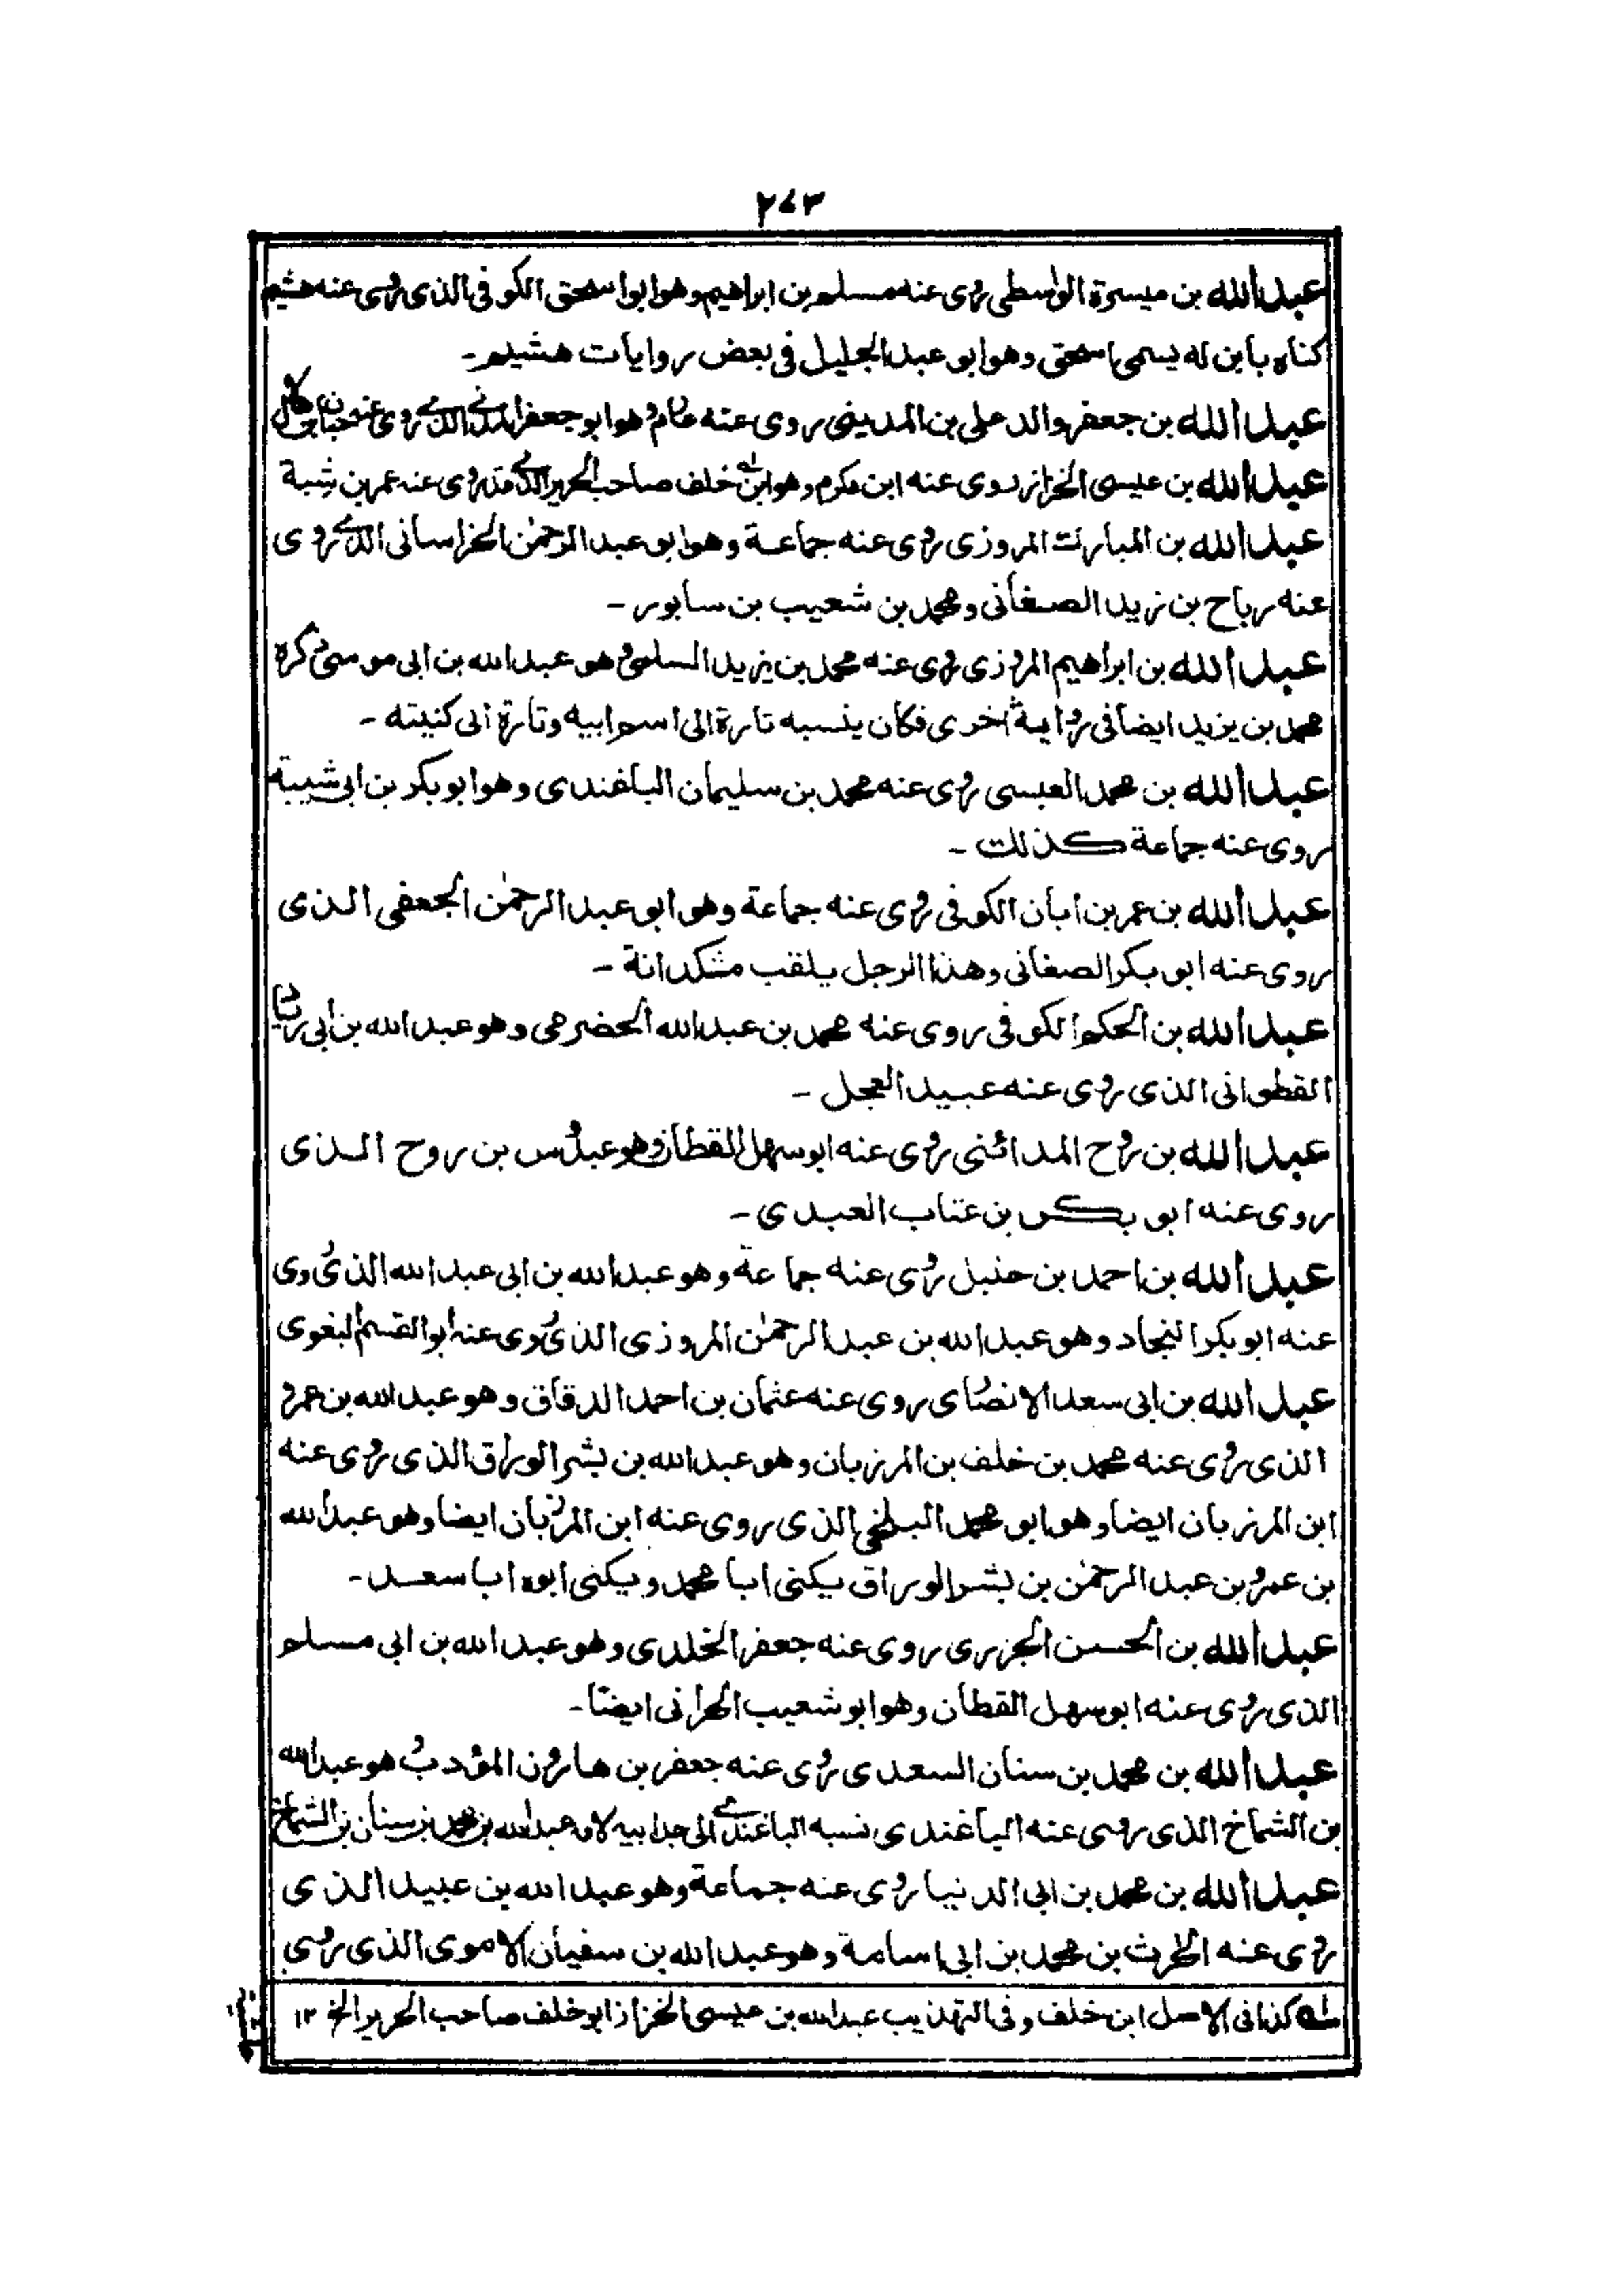 ٢٧٣
عبد الله بن ميسرة الواسطى روى عنه مسلم بن ابراهيم وهو ابو اسحق الكوفى الذى روى عنه هشيم
كناه بابن له يسمى اسحق وهو ابو عبد الجليل فى بعض روايات هشيم ـ
عبد الله بن جعفر والد على بن المدينى روى عنه وهو ابو جعفر المدنى الذى روى عنه
عبد الله بن عيسى الخزاز روى عنه ابن مكرم وهو ابن خلف صاحب الحرير الذى روى عنه عمر بن شبة
عبد الله بن المبارك المروزى روى عنه جماعة وهو ابو عبد الرحمٰن الخراسانى الذى روى
عنه رباح بن زيد الصغانى ومحمد بن شعيب بن سابور ـ
عبد الله بن ابراهيم المروزى روى عنه محمد بن يزيد السلمى وهو عبد الله بن ابى موسى ذكره
محمد بن يزيد ايضا فى رواية اخرى فكان ينسبه تارة الى اسم ابيه وتارة الى كنيته ـ
عبد الله بن محمد العبسى روى عنه محمد بن سليمان الباغندى وهو ابو بكر بن ابى شيبة
روى عنه جماعة كذلك ـ
عبد الله بن عمر بن ابان الكوفى روى عنه جماعة وهو ابو عبد الرحمٰن الجعفى الذى
روى عنه ابو بكر الصغانى وهذا الرجل يلقب مشكدانة ـ
عبد الله بن الحكم الكوفى روى عنه محمد بن عبد الله الحضرمى وهو عبد الله بن ابى زياد
القطوانى الذى روى عنه عبيد العجل ـ
عبد الله بن روح المدائنى روى عنه ابو سهل القطان وهو عبدوس بن روح الذى
روى عنه ابو بكر بن عتاب العبدى ـ
عبد الله بن احمد بن حنبل روى عنه جماعة وهو عبد الله بن ابى عبد الله الذى روى
عنه ابو بكر النجاد وهو عبد الله بن عبد الرحمٰن المروزى الذى روى عنه ابو القسم البغوى
عبد الله بن ابى سعد الانصارى روى عنه عثمان بن احمد الدقاق وهو عبد الله بن عمرو
الذى روى عنه محمد بن خلف بن المرزبان وهو عبد الله بن بشر الوراق الذى روى عنه
ابن المرزبان ايضا وهو ابو محمد البلخى الذى روى عنه ابن المرزبان ايضا وهو عبد الله
بن عمرو بن عبد الرحمٰن بن بشر الوراق يكنى ابا محمد ويكنى ابوه ابا سعد ـ
عبد الله بن الحسن الجزرى روى عنه جعفر الخلدى وهو عبد الله بن ابى مسلم
الذى روى عنه ابو سهل القطان وهو ابو شعيب الحرانى ايضا ـ
عبد الله بن محمد بن سنان السعدى روى عنه جعفر بن هارون المؤدب وهو عبد الله
بن الشماخ الذى روى عنه الباغندى نسبه الباغندى الى جد ابيه لانه عبد الله بن محمد بن سنان بن الشماخ
عبد الله بن محمد بن ابى الدنيا روى عنه جماعة وهو عبد الله بن عبيد الذى
روى عنه الحرث بن محمد بن ابى اسامة وهو عبد الله بن سفيان الاموى الذى روى
له كذا فى الاصل ابن خلف وفى التهذيب عبد الله بن عيسى الخزاز ابو خلف صاحب الحرير الخ ١٢